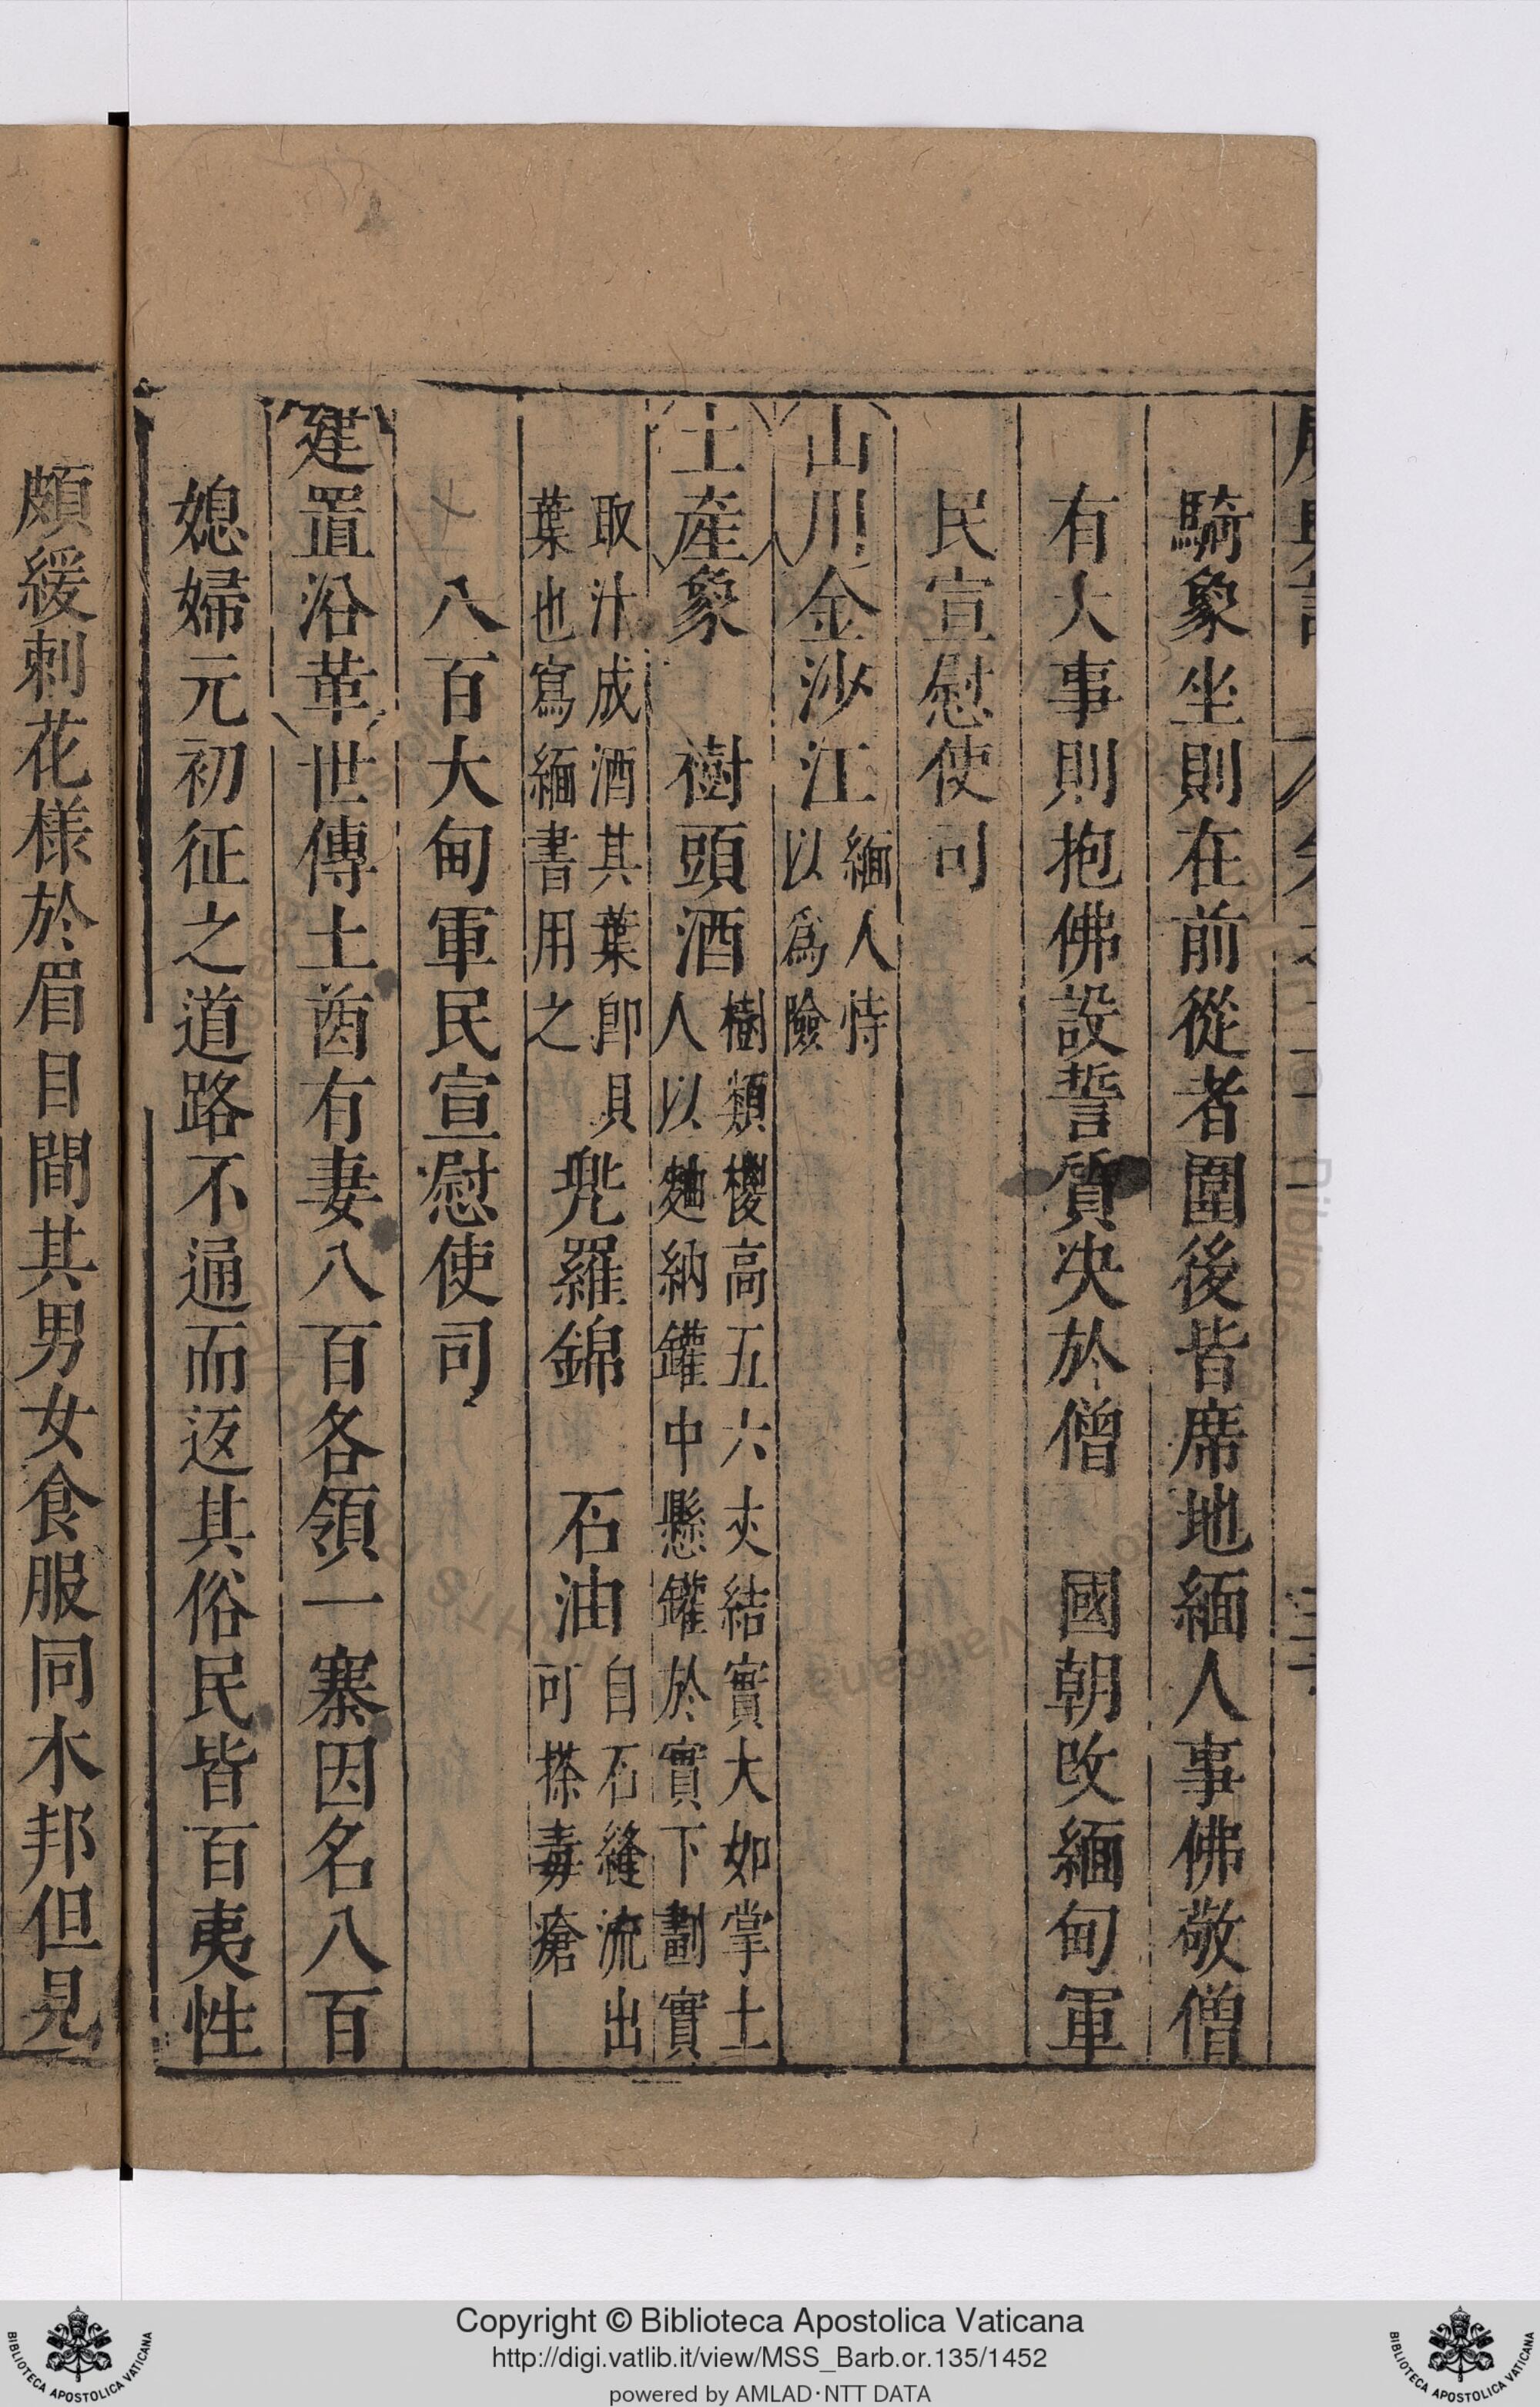 騎象坐則在前從者圍後皆席地緬人事佛敬僧
有大事則抱佛設誓質决於僧　國朝改緬甸軍
民宣慰使司
山川金沙江緬人恃以爲險
土産象　樹頭酒樹類椶高五六丈結實大如掌土人以麯納罐中懸罐於實下劃實
取汁成酒其葉卽貝葉也寫緬書用之兠羅錦　石油自石縫流出可搽毒瘡
八百大甸軍民宣慰使司
建置沿革世傳土酋有妻八百各領一寨因名八百
媳婦元初征之道路不通而返其俗民皆百夷性
頗緩刺花樣於眉目間其男女食服同木邦但見
Copyright © Biblioteca Apostolica Vaticana
http://digi.vatlib.it/view/MSS_Barb.or.135/1452
powered by AMLAD·NTT DATA
BIBLIOTECA APOSTOLICA VATICANA
BIBLIOTECA APOSTOLICA VATICANA